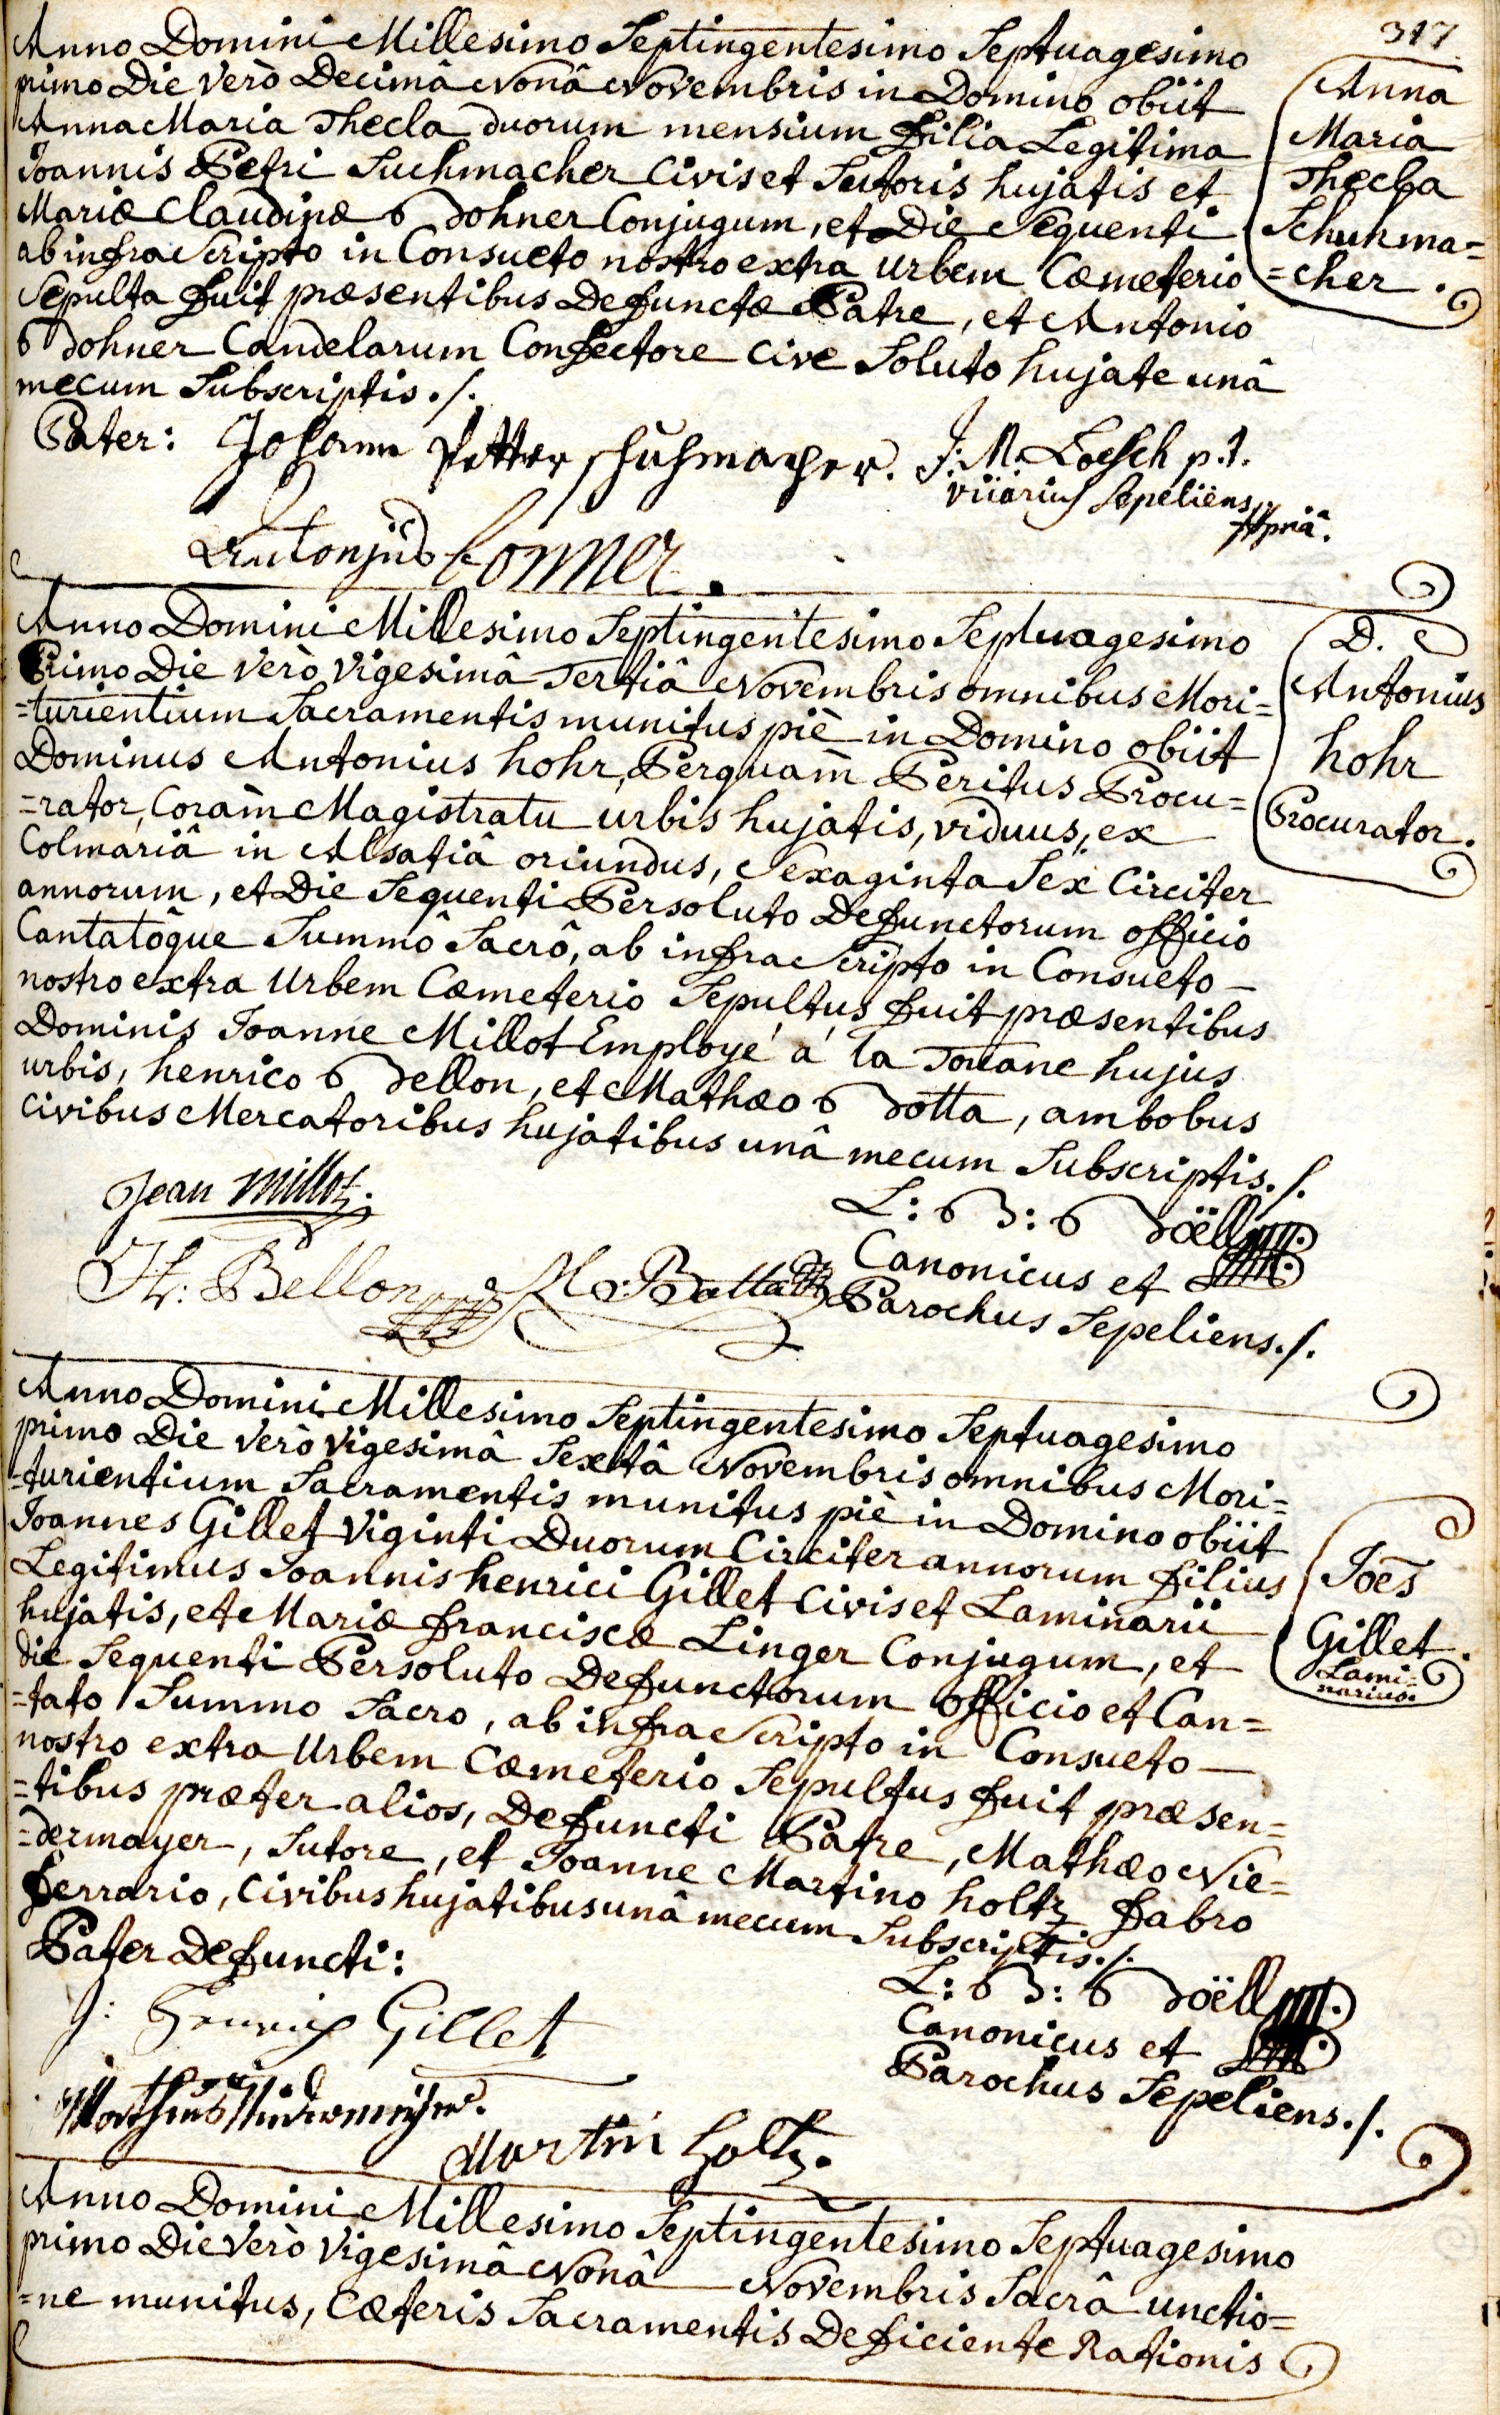 317
Anno Domini Millesimo Septingentesimo Septuagesimo
primo Die verò Decimâ Nonâ Novembris in Domino obiit
Anna Maria Thecla duorum mensium Filia Legitima
Joannis Petri Suchmacher Civis et Sutoris hujatis et
Mariæ Claudinæ Bohner Conjugum, et Die Sequenti
ab infra Scripto in Consueto nostro extra Urbem Cæmeterio
Sepulta fuit præsentibus Defunctæ Patre, et Antonio
Bohner Candelarum Confectore Cive Soluto hujate unâ
mecum Subscriptis ./.
Anna
Maria
Thecla
Schuhma=
=cher.
Pater: Johann Petter schuhmacher.
J. M. Loesch p.t.
viiarius Sepeliens
Antonjus Bonner.
Anno Domini Millesimo Septingentesimo Septuagesimo
Primo Die verò Vigesimâ Tertiâ Novembris omnibus Mori=
=turientium Sacramentis munitus piè in Domino obiit
Dominus Antonius hohr, Perquam̀ Peritus Procu=
=rator, Coram̀ Magistratu urbis hujatis, viduus, ex
Colmariâ in Alsatiâ oriundus, Sexaginta Sex Circiter
annorum, et Die Sequenti Persoluto Defunctorum officio
Cantatôque Summô Sacrô, ab infra Scripto in Consueto –
nostro extra Urbem Cæmeterio Sepultus fuit præsentibus
Dominis Joanne Millot Employé á la Douane hujus
urbis, henrico Bellon, et Mathæo Botta, ambobus
Civibus Mercatoribus hujatibus unâ mecum Subscriptis ./.
D.
Antonius
hohr
Procurator.
Jean Millot.
H: Bellon
M: Botta
L: B: Boëll
Canonicus et
Parochus Sepeliens ./.
Anno Domini Millesimo Septingentesimo Septuagesimo
primo Die verò Vigesimâ Sextâ Novembris omnibus Mori=
=turientium Sacramentis munitus piè in Domino obiit
Joannes Gillet Viginti Duorum Circiter annorum Filius
Legitimus Joannis henrici Gillet Civis et Laminarii
hujatis, et Mariæ Franciscæ Linger Conjugum, et
die Sequenti Persoluto Defunctorum officio et Can=
=tato Summo Sacro, ab infra Scripto in Consueto –
nostro extra Urbem Cæmeterio Sepultus fuit præsen=
=tibus præter alios, Defuncti Patre, Mathæo Nie=
=dermayer, Sutore, et Joanne Martino holtz Fabro
Ferrario, Civibus hujatibus unâ mecum Subscriptis ./.
Joēs
Gillet.
Lami-
narius.
Pater Defuncti:
J: Henrich Gillet
Mathæus Niedermeyer.
Martin holtz.
L: B: Boëll
Canonicus et
Parochus Sepeliens ./.
Anno Domini Millesimo Septingentesimo Septuagesimo
primo Die verò Vigesimâ Nonâ Novembris Sacrâ unctio=
=ne munitus, Cæteris Sacramentis Deficiente Rationis